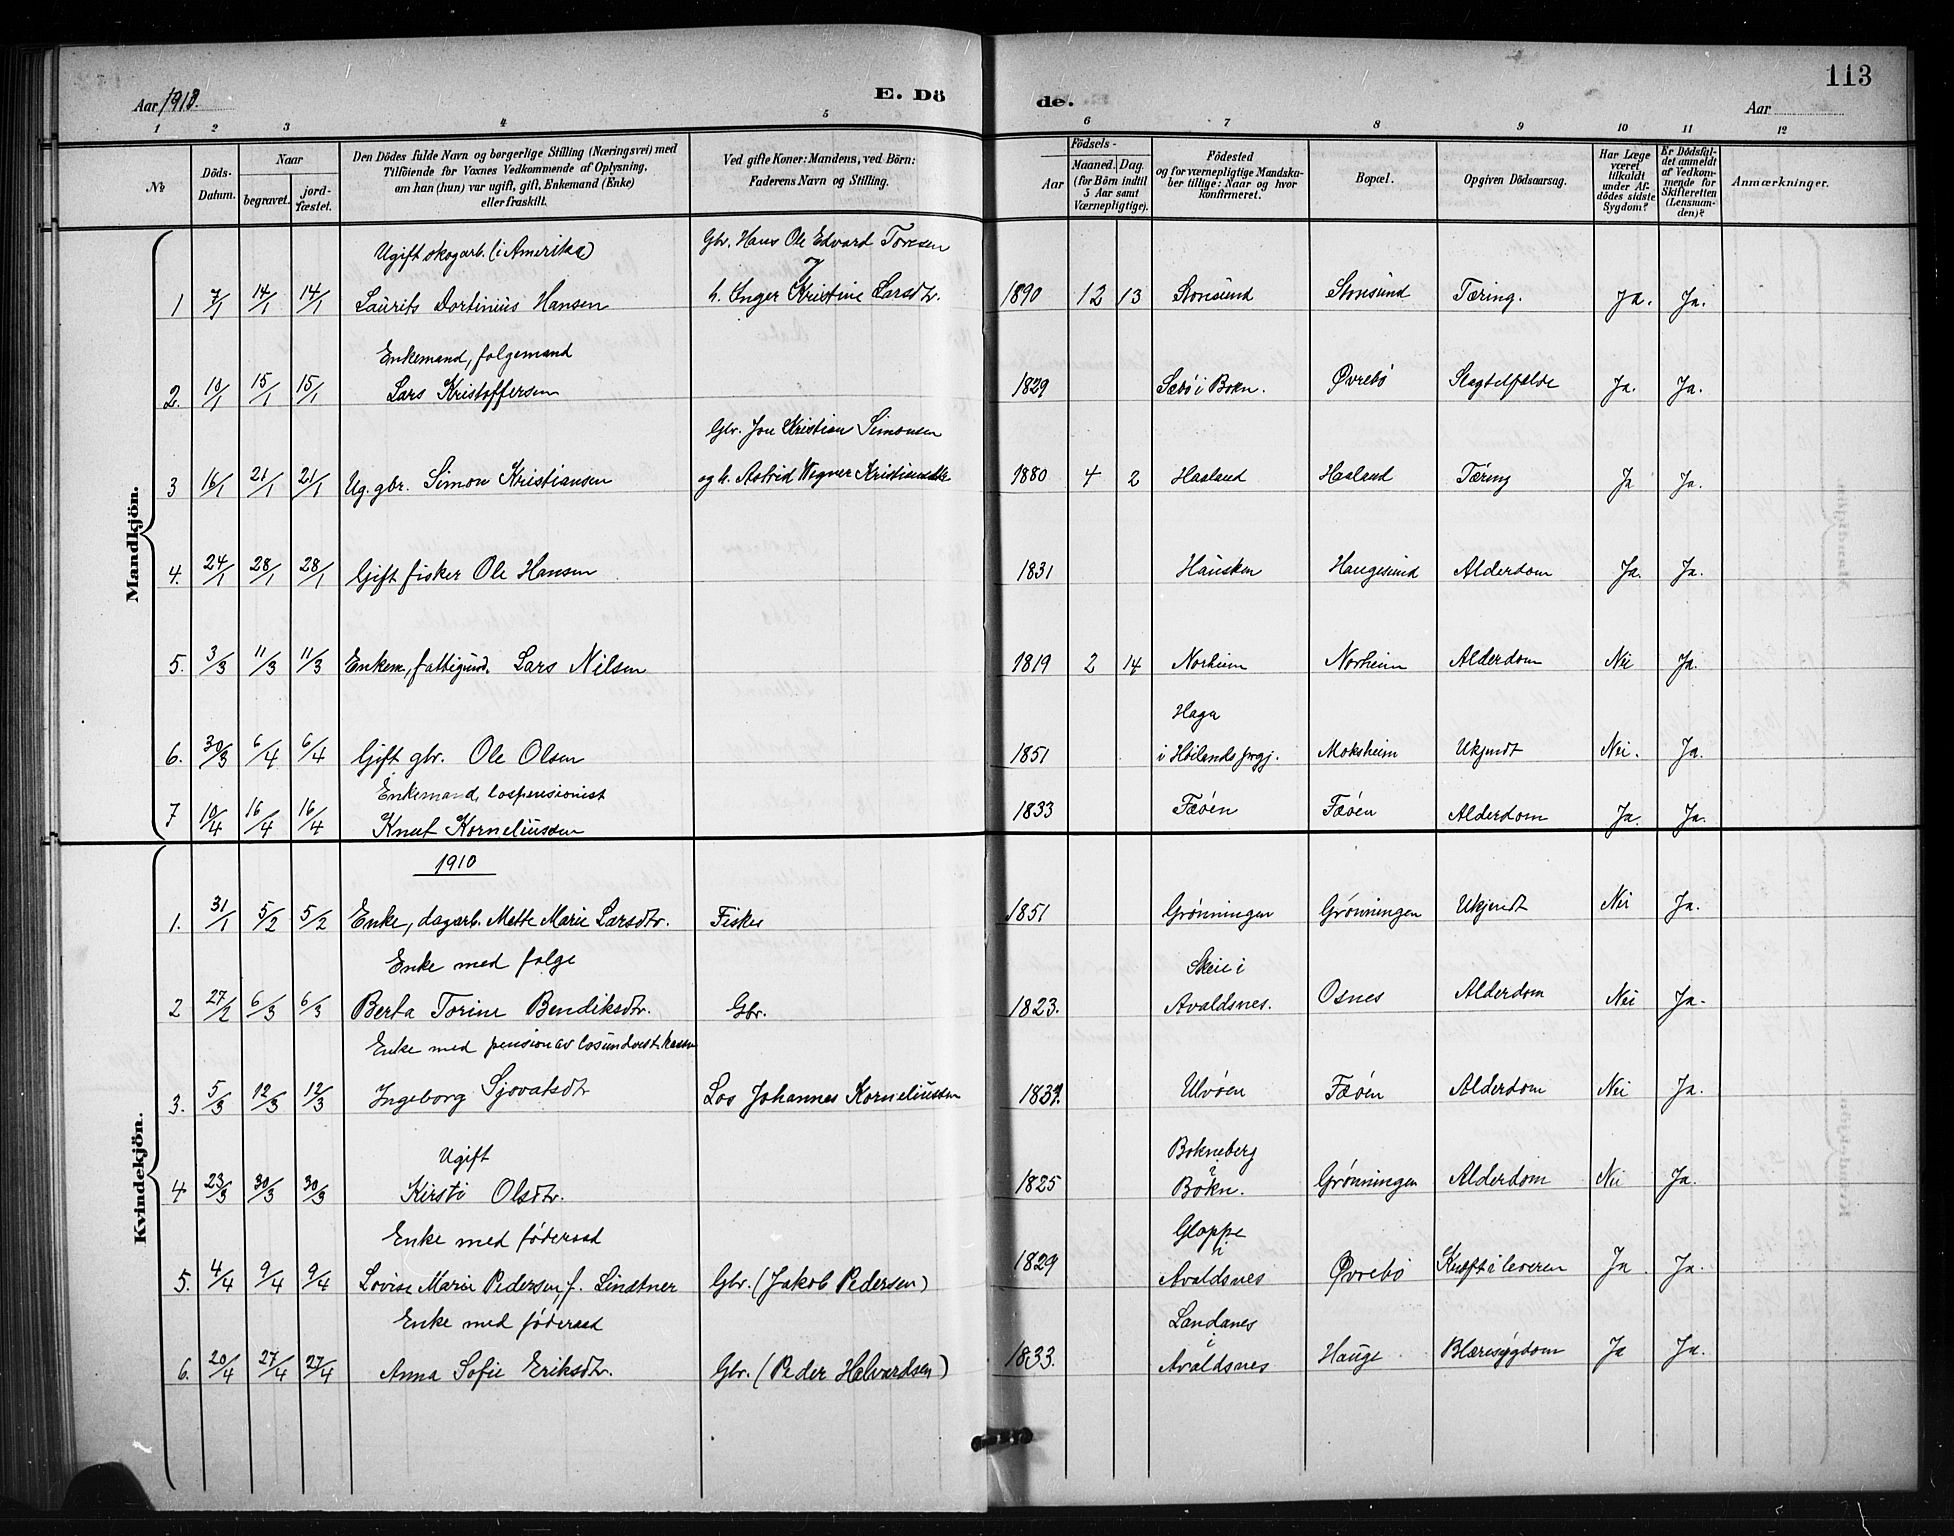 Aar 1913.
E. Dö
de.
113
Aar
1 2 3 4 5 6 7 8 9 10 11 12
No
Döds-Datum.
Naar
begravet.
jord-fæstet.
Den Dödes fulde Navn og borgerlige Stilling (Næringsvei) med
Tilföiende for Voxnes Vedkommende af Oplysning,
om han (hun) var ugift, gift, Enkemand (Enke)
eller fraskilt.
Ved gifte Koner: Mandens, ved Börn:
Faderens Navn og Stilling.
Födsels-
Aar
Maaned. Dag.
(for Börn indtil
5 Aar samt
Værnepligtige).
Födested
og for værnepligtige Mandska-
ber tillige: Naar og hvor
konfirmeret.
Bopæl.
Opgiven Dödsaarsag.
Har Læge
været
tilkaldt
under Af-
dödes sidste
Sygdom?
Er Dödsfal-
det anmeldt
af Vedkom-
mende for
Skifteretten
(Lensman-
den)?
Anmærkninger.
Mandkjön.
Ugift skogarb. (i Amerika) Gbr. Hans Ole Edvard Toresen
1 7/1 14/1 14/1 Laurits Dortinius Hansen h. Inger Kristine Larsdtr. 1890 12 13 Stonsund Stonsund Tæring. Ja. Ja.
Enkemand, folgemand
2. 10/1 15/1 15/1 Lars Kristoffersen 1829 Sæbö i Bokn. Øvrebö Slagtilfælde Ja. Ja.
Gbr. Jon Kristian Simonsen
3 16/1 21/1 21/1 Ug. gbr. Simon Kristiansen og h. Astrid Wegner Kristiansdtr 1880 4 2 Haaland Haaland Tæring Ja Ja.
4. 24/1 28/1 28/1 Gift fisker Ole Hansen 1831 Hausken Haugesund Alderdom Ja. Ja.
5. 3/3 11/3 11/3 Enkem., fattigund. Lars Nilsen 1819 2 14 Norheim Norheim Alderdom Nei Ja.
Haga
6. 30/3 6/4 6/4 Gift gbr. Ole Olsen 1851 i Høilands prgj. Moksheim Ukjendt Nei. Ja.
Enkemand, lospensionist
7 10/4 16/4 16/4 Knut Korneliussen 1833 Fæöen Fæöen Alderdom Ja. Ja.
Kvindekjön.
1910
1. 31/1 5/2 5/2 Enke, dagarb. Mette Marie Larsdtr. Fisker 1851 Grønningen Grønningen Ukjendt Nei Ja.
Enke med folge Skeie i
2 27/2 6/3 6/3 Berta Torine Bendiksdtr. Gbr. 1823. Avaldsnes. Osnes Alderdom Nei Ja.
Enke med pension av losunderst. kassen
3. 5/3 12/3 12/3 Ingeborg Sjovatsdtr Los Johannes Korneliussen Ulvöen Fæöen Alderdom Nei Ja.
Ugift Bokneberg
4 23/3 30/3 30/3 Kirsti Olsdtr. 1825 i Bokn. Grønningen Alderdom Nei Ja.
Enke med føderaad Gloppe
5. 4/4 9/4 9/4 Lovise Marie Pedersen, f. Lindtner Gbr. (Jakob Pedersen) 1829 i Avaldsnes Øvrebö Kræft i leveren Ja. Ja.
Enke med føderaad Landanes
6. 20/4 27/4 27/4 Anna Sofie Eriksdtr. Gbr. (Peder Halvardsen) 1833. i Avaldsnes Hauge Blæresygdom Ja Ja.